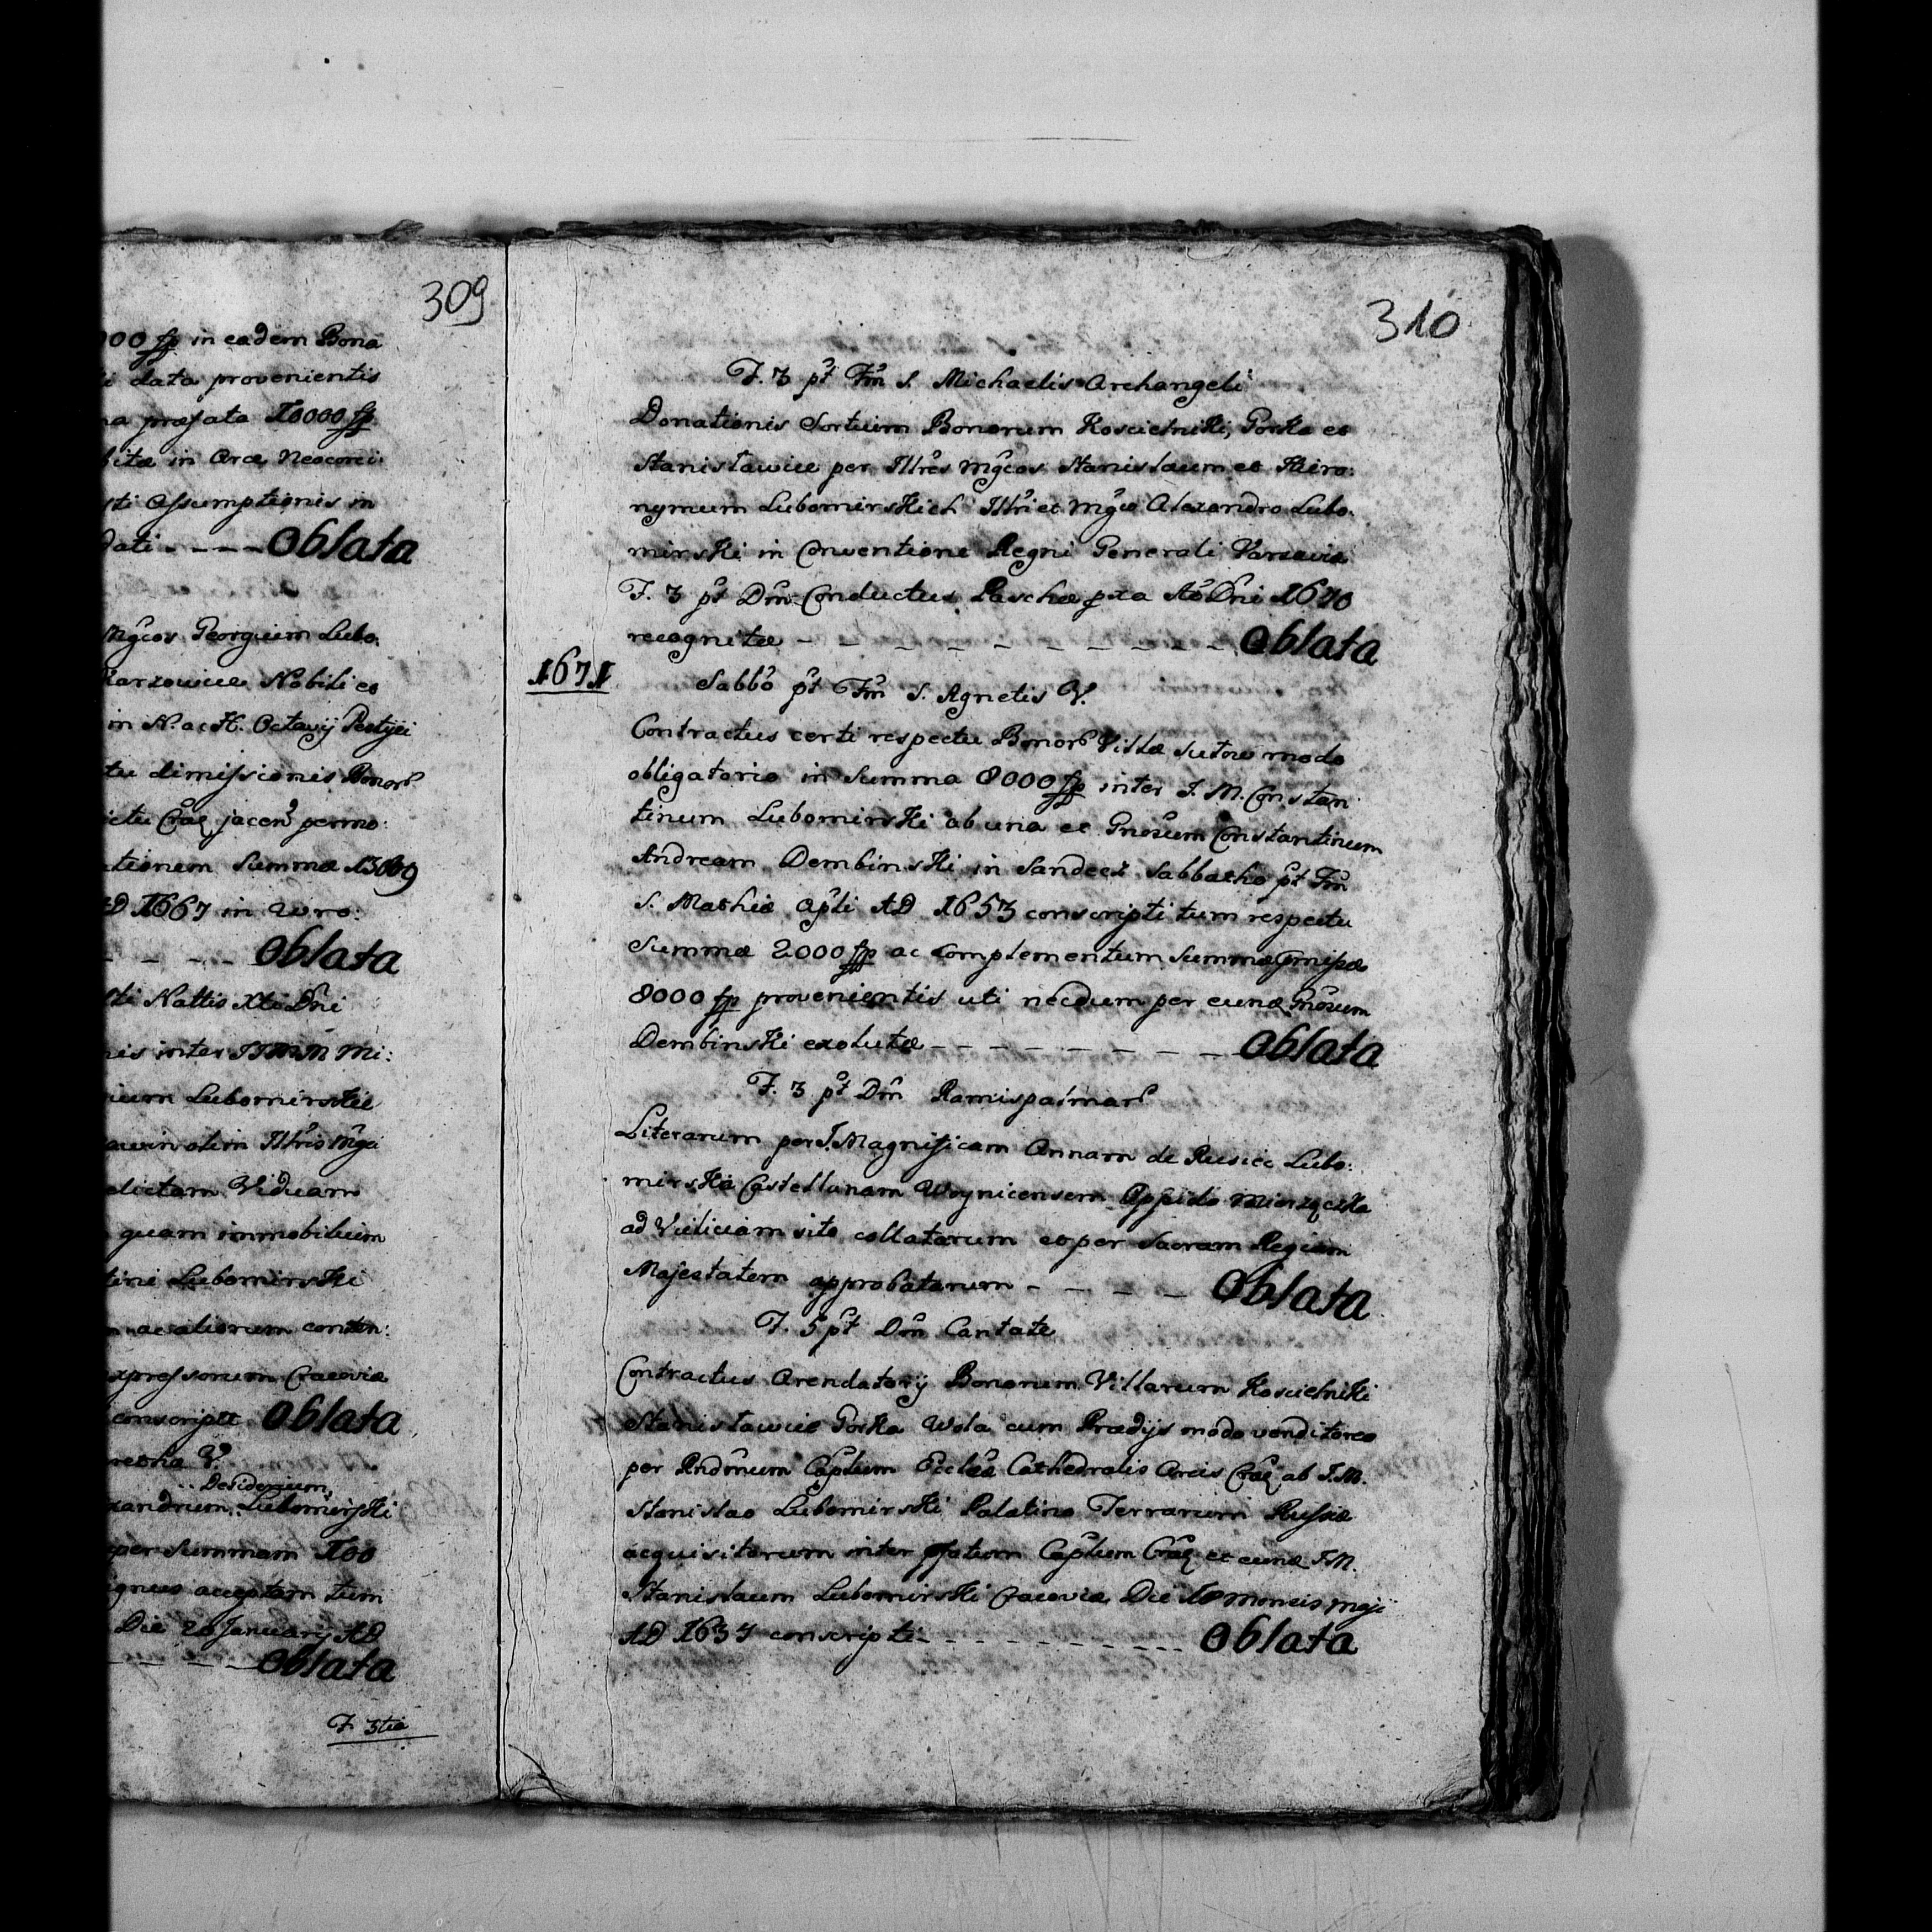 309
000 fp in eadem Bona
data provenientis
na præfata 10000 fp
bitæ in Arce Neocorci
sti Assumptionis in
dati - - - - Oblata
Mgcos Georgium Lubo:
Nobili et
in N. ac H. Octavij Pestyei
tu dimissionis Bonor
ictu Crac jacen permo:
ationem Summæ
AD 1667 in Wro:
- - - - Oblata
sti Nattis Xti Dni
is inter IIMM Mi:
ium Lubomirskie
olim Illris Mgci
elictam Viduam
quam immobilium
tini Lubomirski
ac aliorum conten:
xpressorum Cracoviæ
conscripti Oblata
V.
Desiderium
xandrum Lubomirski
per Summam 100
ignus acceptam tum
Die 20 Januarij AD
- - - - Oblata
F. 3tia
310
F. 3 pt Fm S. Michaelis Archangeli
Donationis Sortium Bonorum Koscielniki, Gorka et
Stanisławice per Illres Mgcos Stanislaum et Hiero:
nymum Lubomirskich Illri et Mgco Alexandro Lubo:
mirski in Conventione Regni Generali Varsaviæ
F. 3 pt Dm Conductus Paschæ pxa Ao Dni 1670
recognitæ - - - - - - - - - - Oblata
1671
Sabbo pt Fm S. Agnetis V.
Contractus certi respectu Bonor Villæ Sutow modo
obligatorio in Summa 8000 fp inter I. M. Constan
tinum Lubomirski ab una et Gnosum Constantinum
Andream Dembinski in Sandecz Sabbatho pt Fm
S. Mathiæ Apli AD 1653 conscripti tum respectu
Summæ 2000 fp ac complementum Summæ pmissæ
8000 fp provenientis uti necdum per eund Gnosum
Dembinski exolutæ - - - - - - - - Oblata
F. 3 pt Dm Ramispalmar
Literarum per I. Magnificam Annam de Rusiec Lubo:
mirska Castellanam Woynicensem Oppido Mierzączka
ad Vieliciam sito collatarum et per Sacram Regiam
Majestatem approbatarum - - - - - Oblata
F. 5 pt Dm Cantate
Contractus Arendatorij Bonorum Villarum Koscielniki
Stanisławice Gorka Wola cum Prædijs modo venditoreo
per Rndmum Caplum Ecclæ Cathedralis Arcis Crac ab I. M.
Stanislao Lubomirski Palatino Terrarum Russiæ
acquisitorum inter pfatum Caplum Crac et eund I. M.
Stanislaum Lubomirski Cracoviæ Die 10 mensis Maji
AD 1637 conscripti - - - - - - - - - - Oblata